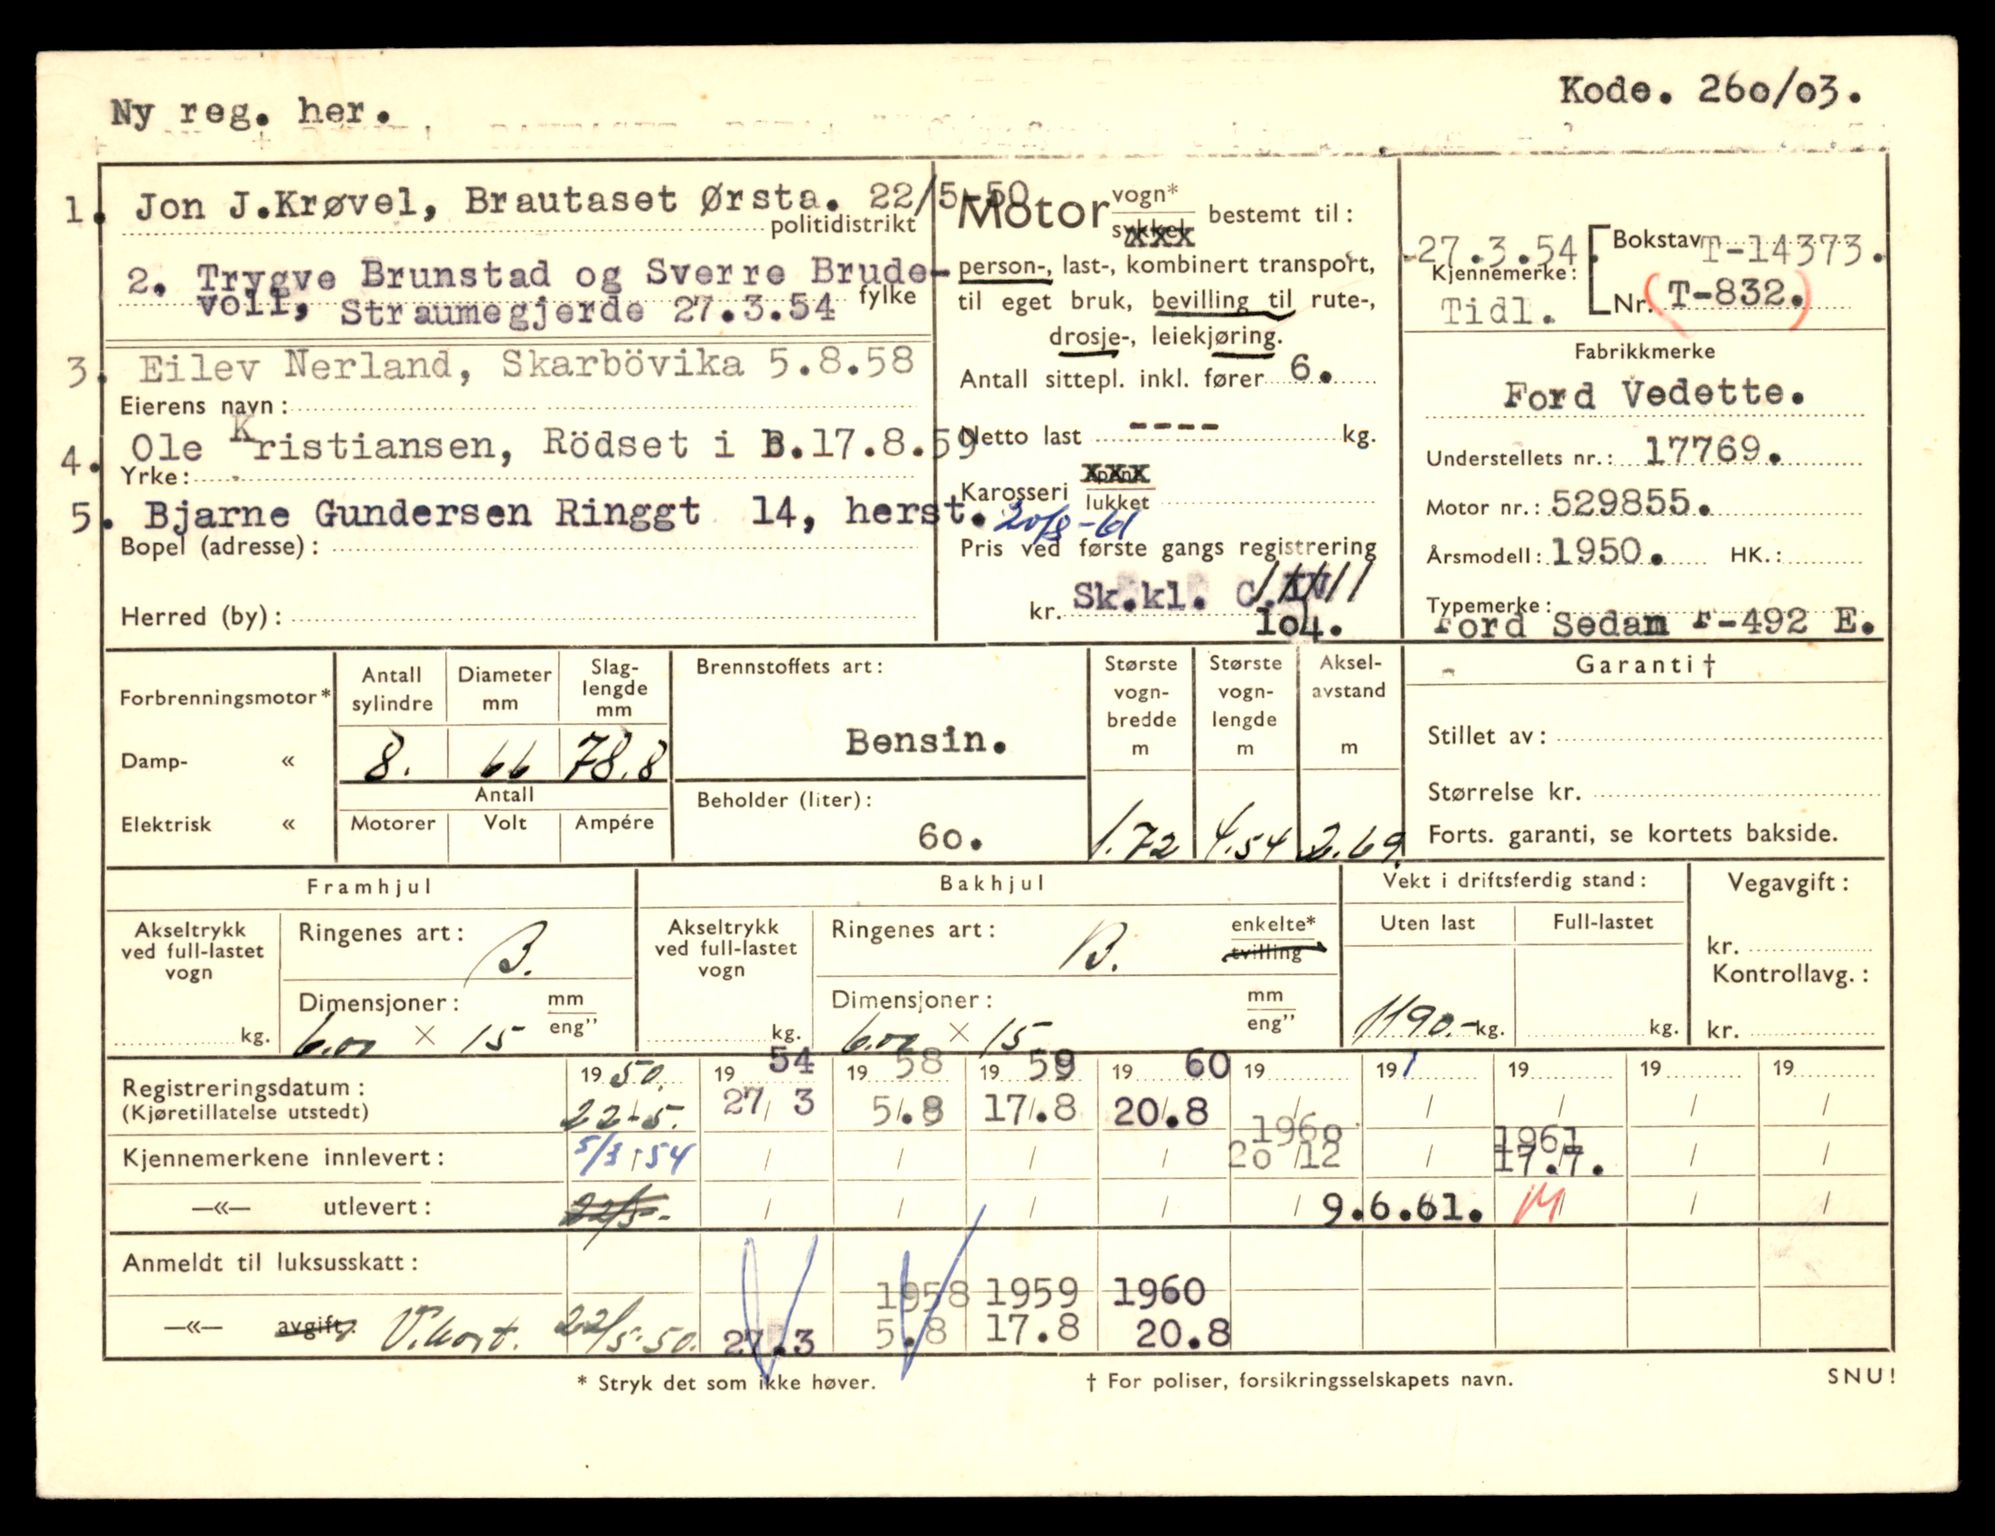 Ny reg. her.
Kode. 260/03.
1. Jon J.Krøvel, Brautaset Ørsta. 22/5-50
politidistrikt
2. Trygve Brunstad og Sverre Brude-
voll, Straumegjerde 27.3.54
fylke
3. Eilev Nerland, Skarbövika 5.8.58
Eierens navn:
4. Ole Kristiansen, Rödset i B.17.8.59
Yrke:
5. Bjarne Gundersen Ringgt 14, herst. 20/8-61
Bopel (adresse):
Herred (by):
Motor vogn*
sykkel bestemt til:
person-, last-, kombinert transport,
til eget bruk, bevilling til rute-,
drosje-, leiekjøring.
Antall sittepl. inkl. fører 6.
Netto last ---- kg.
Karosseri
lukket
Pris ved første gangs registrering
kr. Sk.kl. C.
104.
27.3.54. Bokstav T-14373.
Kjennemerke:
Tidl. Nr. (T-832.)
Fabrikkmerke
Ford Vedette.
Understellets nr.: 17769.
Motor nr.: 529855.
Årsmodell: 1950. HK.:
Typemerke:
Ford Sedan F-492 E.
Forbrenningsmotor*
Damp- «
Elektrisk «
Antall sylindre
8.
Diameter mm
66
Slag-lengde mm
78.8
Antall
Motorer Volt Ampére
Brennstoffets art:
Bensin.
Beholder (liter):
60.
Største vogn-bredde m
1.72
Største vogn-lengde m
4.54
Aksel-avstand m
2.69.
Garanti †
Stillet av:
Størrelse kr.
Forts. garanti, se kortets bakside.
Framhjul
Akseltrykk ved full-lastet vogn
kg.
Ringenes art: B.
Dimensjoner: mm
eng"
6.00 × 15
Bakhjul
Akseltrykk ved full-lastet vogn
kg.
Ringenes art: B. enkelte*
tvilling
Dimensjoner: mm
eng"
6.00 × 15
Vekt i driftsferdig stand:
Uten last Full-lastet
1190.- kg. kg.
Vegavgift:
kr.
Kontrollavg.:
kr.
Registreringsdatum: 19 50. 19 54 19 58 19 59 19 60 19 19 1 19 19 19
(Kjøretillatelse utstedt) 22-5. 27/3 5/.8 17/.8 20.8 / / / / /
Kjennemerkene innlevert: 5/3-54 / / / / 1960 20/12 / 1961 17.7. / /
—«— utlevert: 22/5- / / / / / 9.6.61. M / /
Anmeldt til luksusskatt: 1958 1959 1960
—«— avgift: V.kort. 22/5-50. 27.3 5.8 17.8 20.8
* Stryk det som ikke høver.
† For poliser, forsikringsselskapets navn.
SNU!